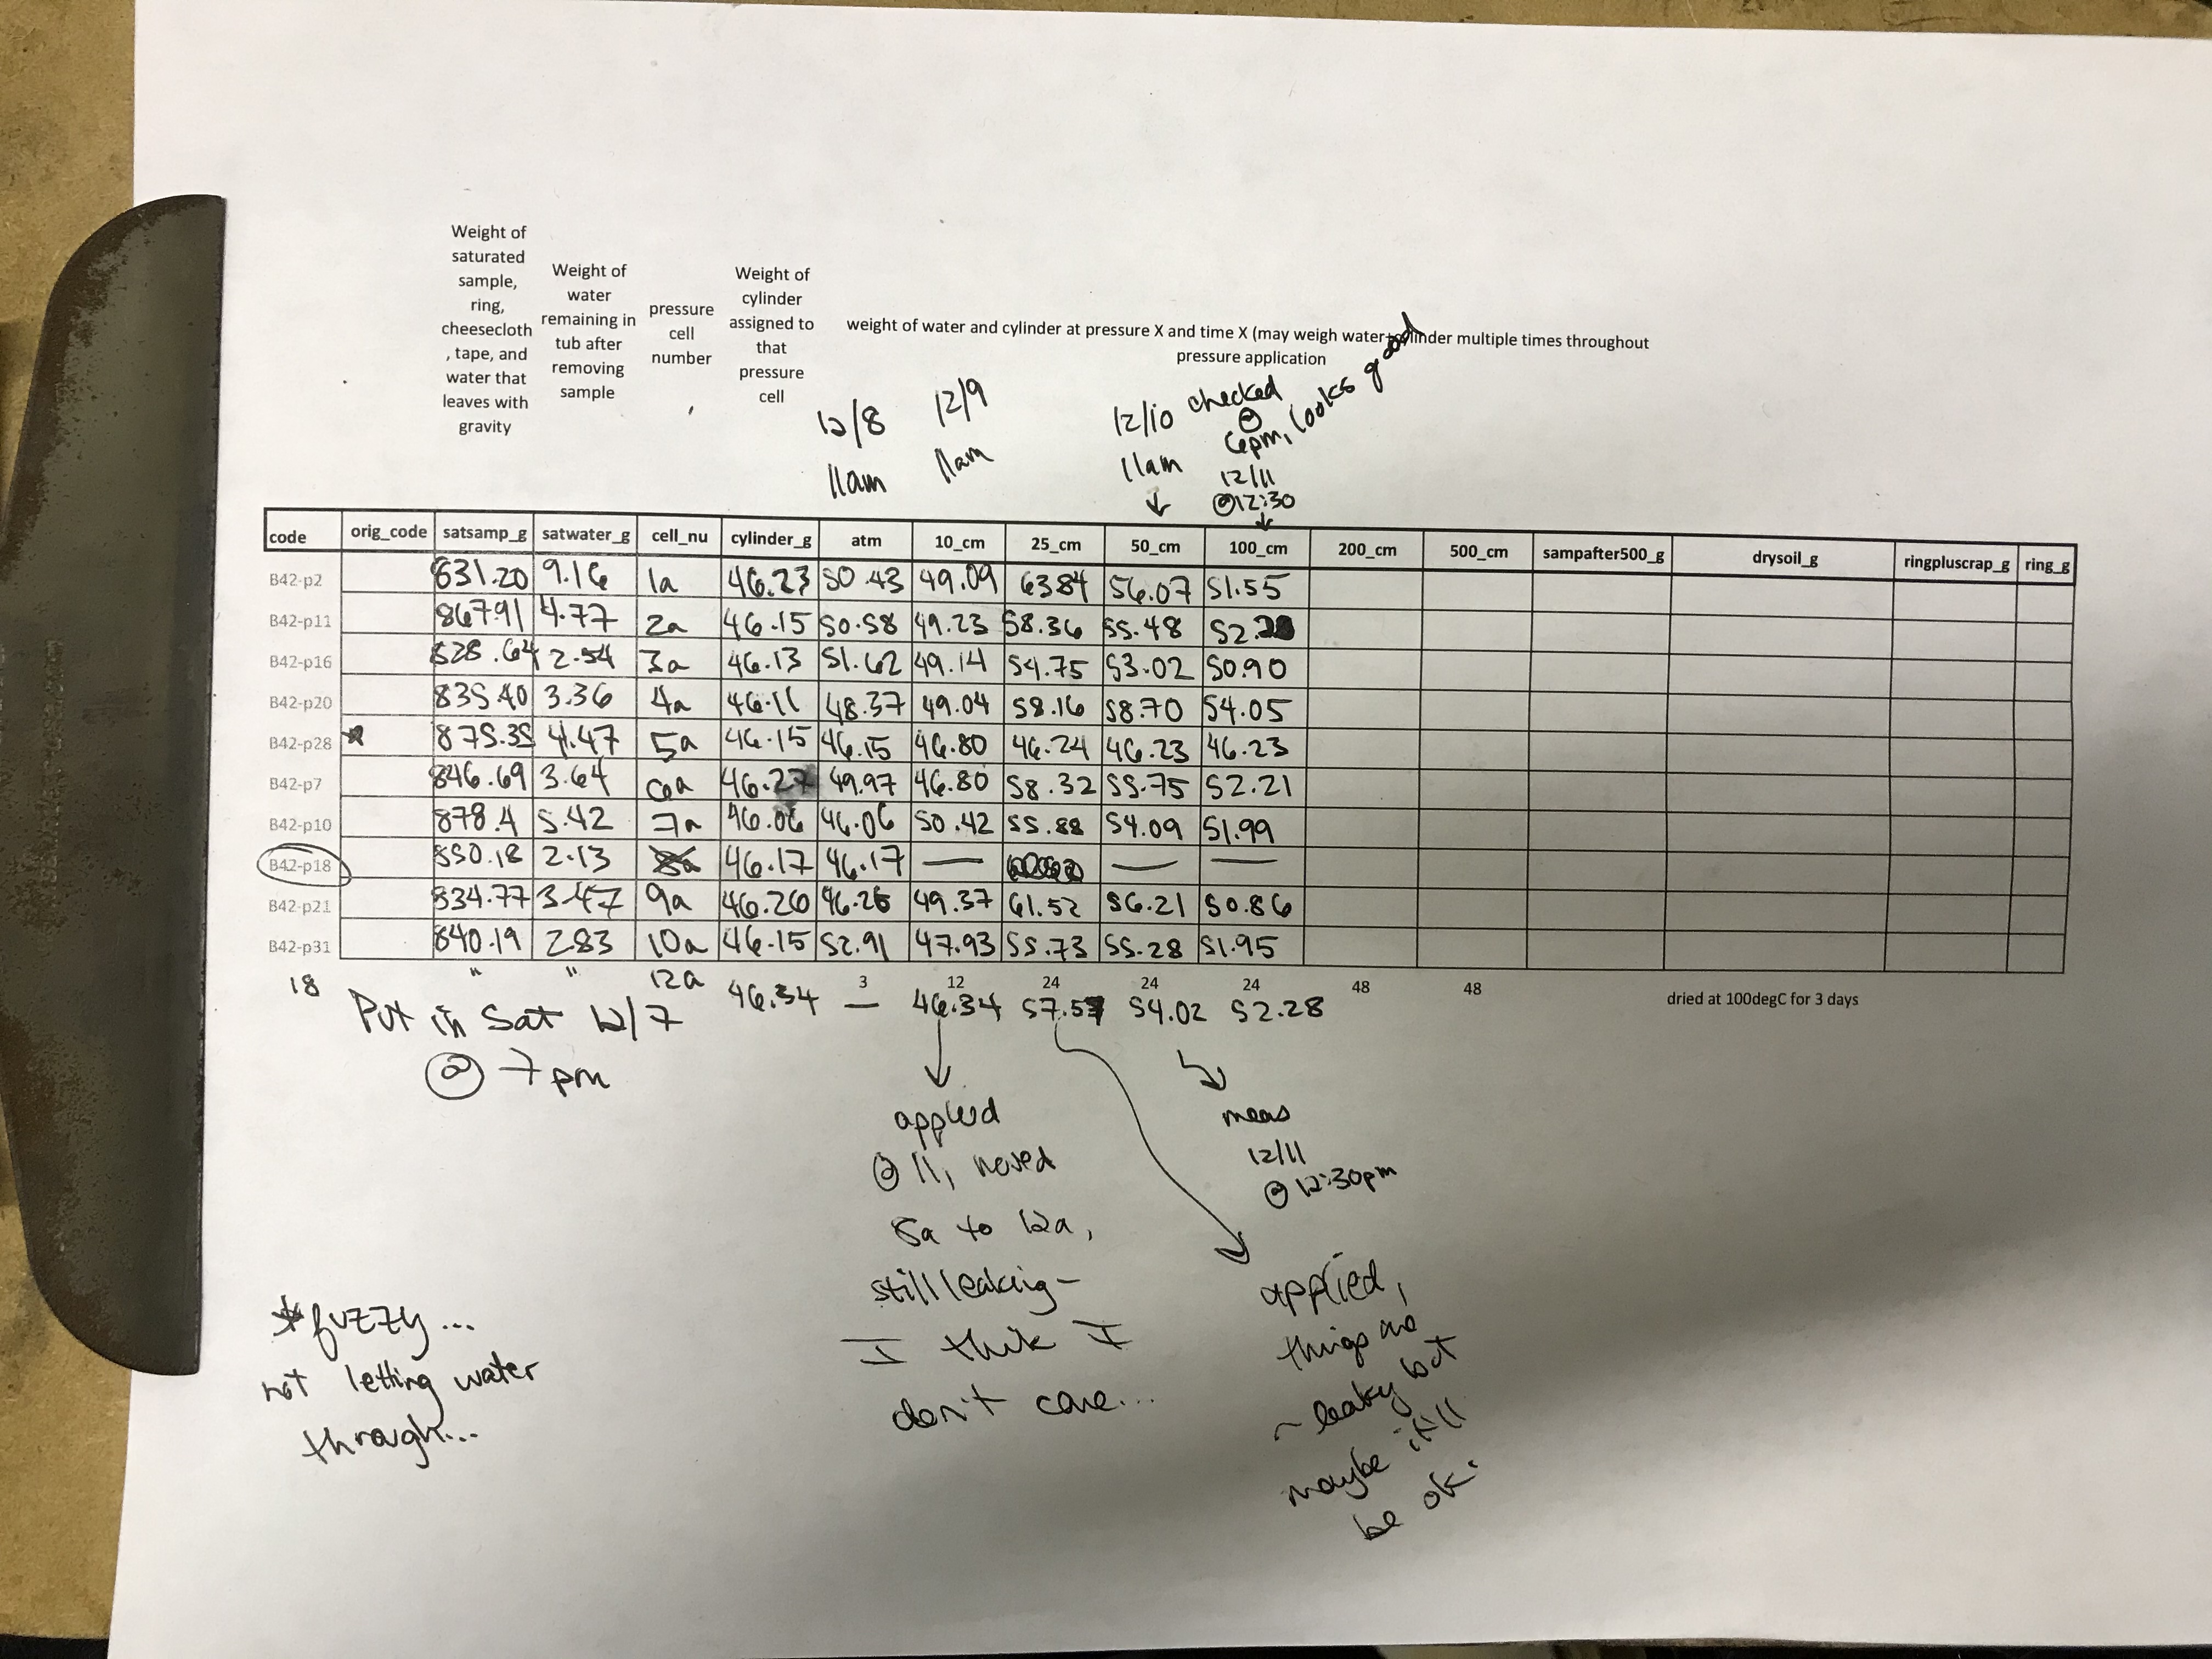 Weight of saturated sample, ring, cheesecloth, tape, and water that leaves with gravity
Weight of water remaining in tub after removing sample
pressure cell number
Weight of cylinder assigned to that pressure cell
weight of water and cylinder at pressure X and time X (may weigh water+cylinder multiple times throughout pressure application
12/8 11am
12/9 11am
12/10 11am
checked @ 6pm, looks good
12/11 @12:30
code orig_code satsamp_g satwater_g cell_nu cylinder_g atm 10_cm 25_cm 50_cm 100_cm 200_cm 500_cm sampafter500_g drysoil_g ringpluscrap_g ring_g
B42-p2 831.20 9.16 1a 46.23 50.43 49.09 63.84 56.07 51.55
B42-p11 867.91 4.77 2a 46.15 50.58 49.23 58.36 55.48
B42-p16 828.64 2.54 3a 46.13 51.62 49.14 54.75 53.02 50.90
B42-p20 835.40 3.36 4a 46.11 48.37 49.04 58.16 58.70 54.05
B42-p28 * 875.35 4.47 5a 46.15 46.15 46.80 46.24 46.23 46.23
B42-p7 846.69 3.64 6a 46.27 49.97 46.80 58.32 55.75 52.21
B42-p10 878.4 5.42 7a 46.06 46.06 50.42 55.88 54.09 51.99
B42-p18 850.18 2.13 8a 46.17 46.17 — — —
B42-p21 834.77 3.47 9a 46.26 46.26 49.37 61.52 56.21 50.86
B42-p31 840.19 2.83 10a 46.15 52.91 47.93 55.73 55.28 51.95
3 12 24 24 24 48 48 dried at 100degC for 3 days
18 " " 12a 46.34 — 46.34 57.57 54.02 52.28
Put in Sat 12/7
@ 7pm
applied
@ 11, moved
8a to 12a,
still leaking -
I think I
don't care...
meas
12/11
@ 12:30pm
applied,
things are
~ leaky but
maybe it'll
be ok.
* fuzzy...
not letting water
through...